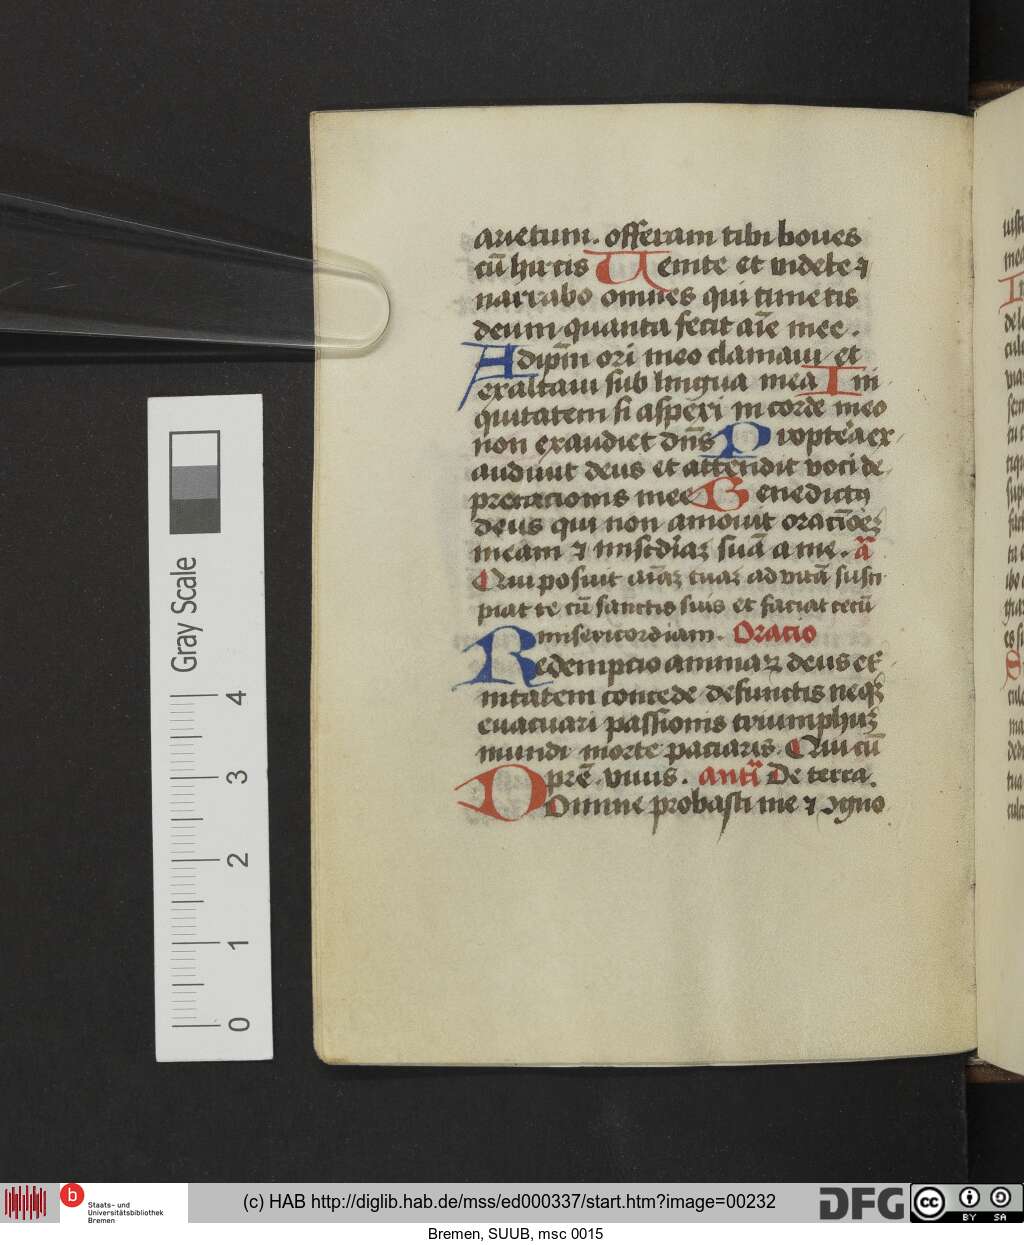 arietum. offeram tibi boues
cū hircis Uenite et videte ⁊
narrabo omnes qui timetis
deum quanta fecit aīe mee.
Ad ipm̄ ori meo clamaui et
exaltaui sub lingua mea Ini
quitatem si aspexi in corde meo
non exaudiet dn̄s Propt'ea ex
audiuit deus et attendit voci de
precacionis mee Benedictꝰ
deus qui non amouit orac̄oēꝫ
meam ⁊ mīscdiaꝫ suā a me. ā
Qui posuit aīaꝫ tuaꝫ ad vitā susci
piat te cū sanctis suis et faciat tecū
misericordiam. Oracio
Redempcio animaꝝ deus et'
nitatem concede defunctis neqꝫ
euacuari passionis triumphuꝫ
mundi morte paciaris. Qui cū
prē. viuis. antī De terra.
Domine probasti me ⁊ ꝯgno
Gray Scale
4
3
2
1
0
b Staats- und
Universitätsbibliothek
Bremen
(c) HAB http://diglib.hab.de/mss/ed000337/start.htm?image=00232
DFG
cc BY SA
Bremen, SUUB, msc 0015